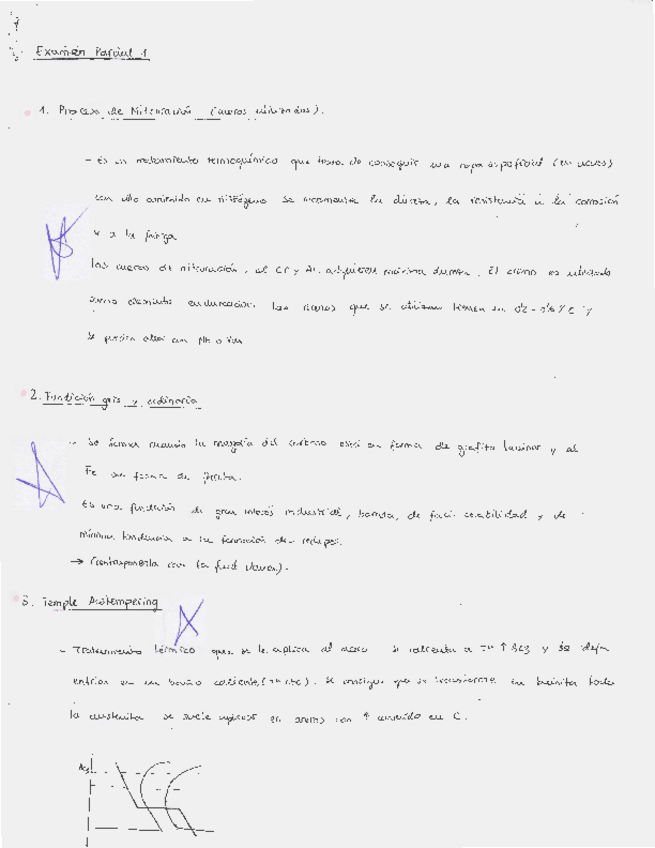 Examen Parcial 1
1. Proceso de Nitruración (aceros utilizados).
- Es un tratamiento termoquímico que trata de conseguir una capa superficial (en aceros)
con alto contenido en nitrógeno se incrementa la dureza, la resistencia a la corrosión
y a la fatiga
Los aceros de nitruración, al Cr y Al adquieren máxima dureza. El cromo es utilizado
como elemento endurecedor. Los aceros que se utilizan tienen un 0'2-0'6 % C y
se pueden alear con Mo o Van
2. Fundición gris y ordinaria
- Se forma cuando la mayoría del carbono está en forma de grafito laminar y el
Fe en forma de ferrita.
Es una fundición de gran interés industrial, barata, de fácil colabilidad y de
mínima tendencia a la formación de rechupes.
→ (contraponerla con la fund blanca).
3. Temple Austempering
- Tratamiento térmico que se le aplica al acero se calienta a Tª ↑ Ac3 y se deja
enfriar en un baño caliente (Tª cte). Se consigue que se transforme en bainita toda
la austenita se suele aplicar en aceros con ↑ contenido en C.
Ac3